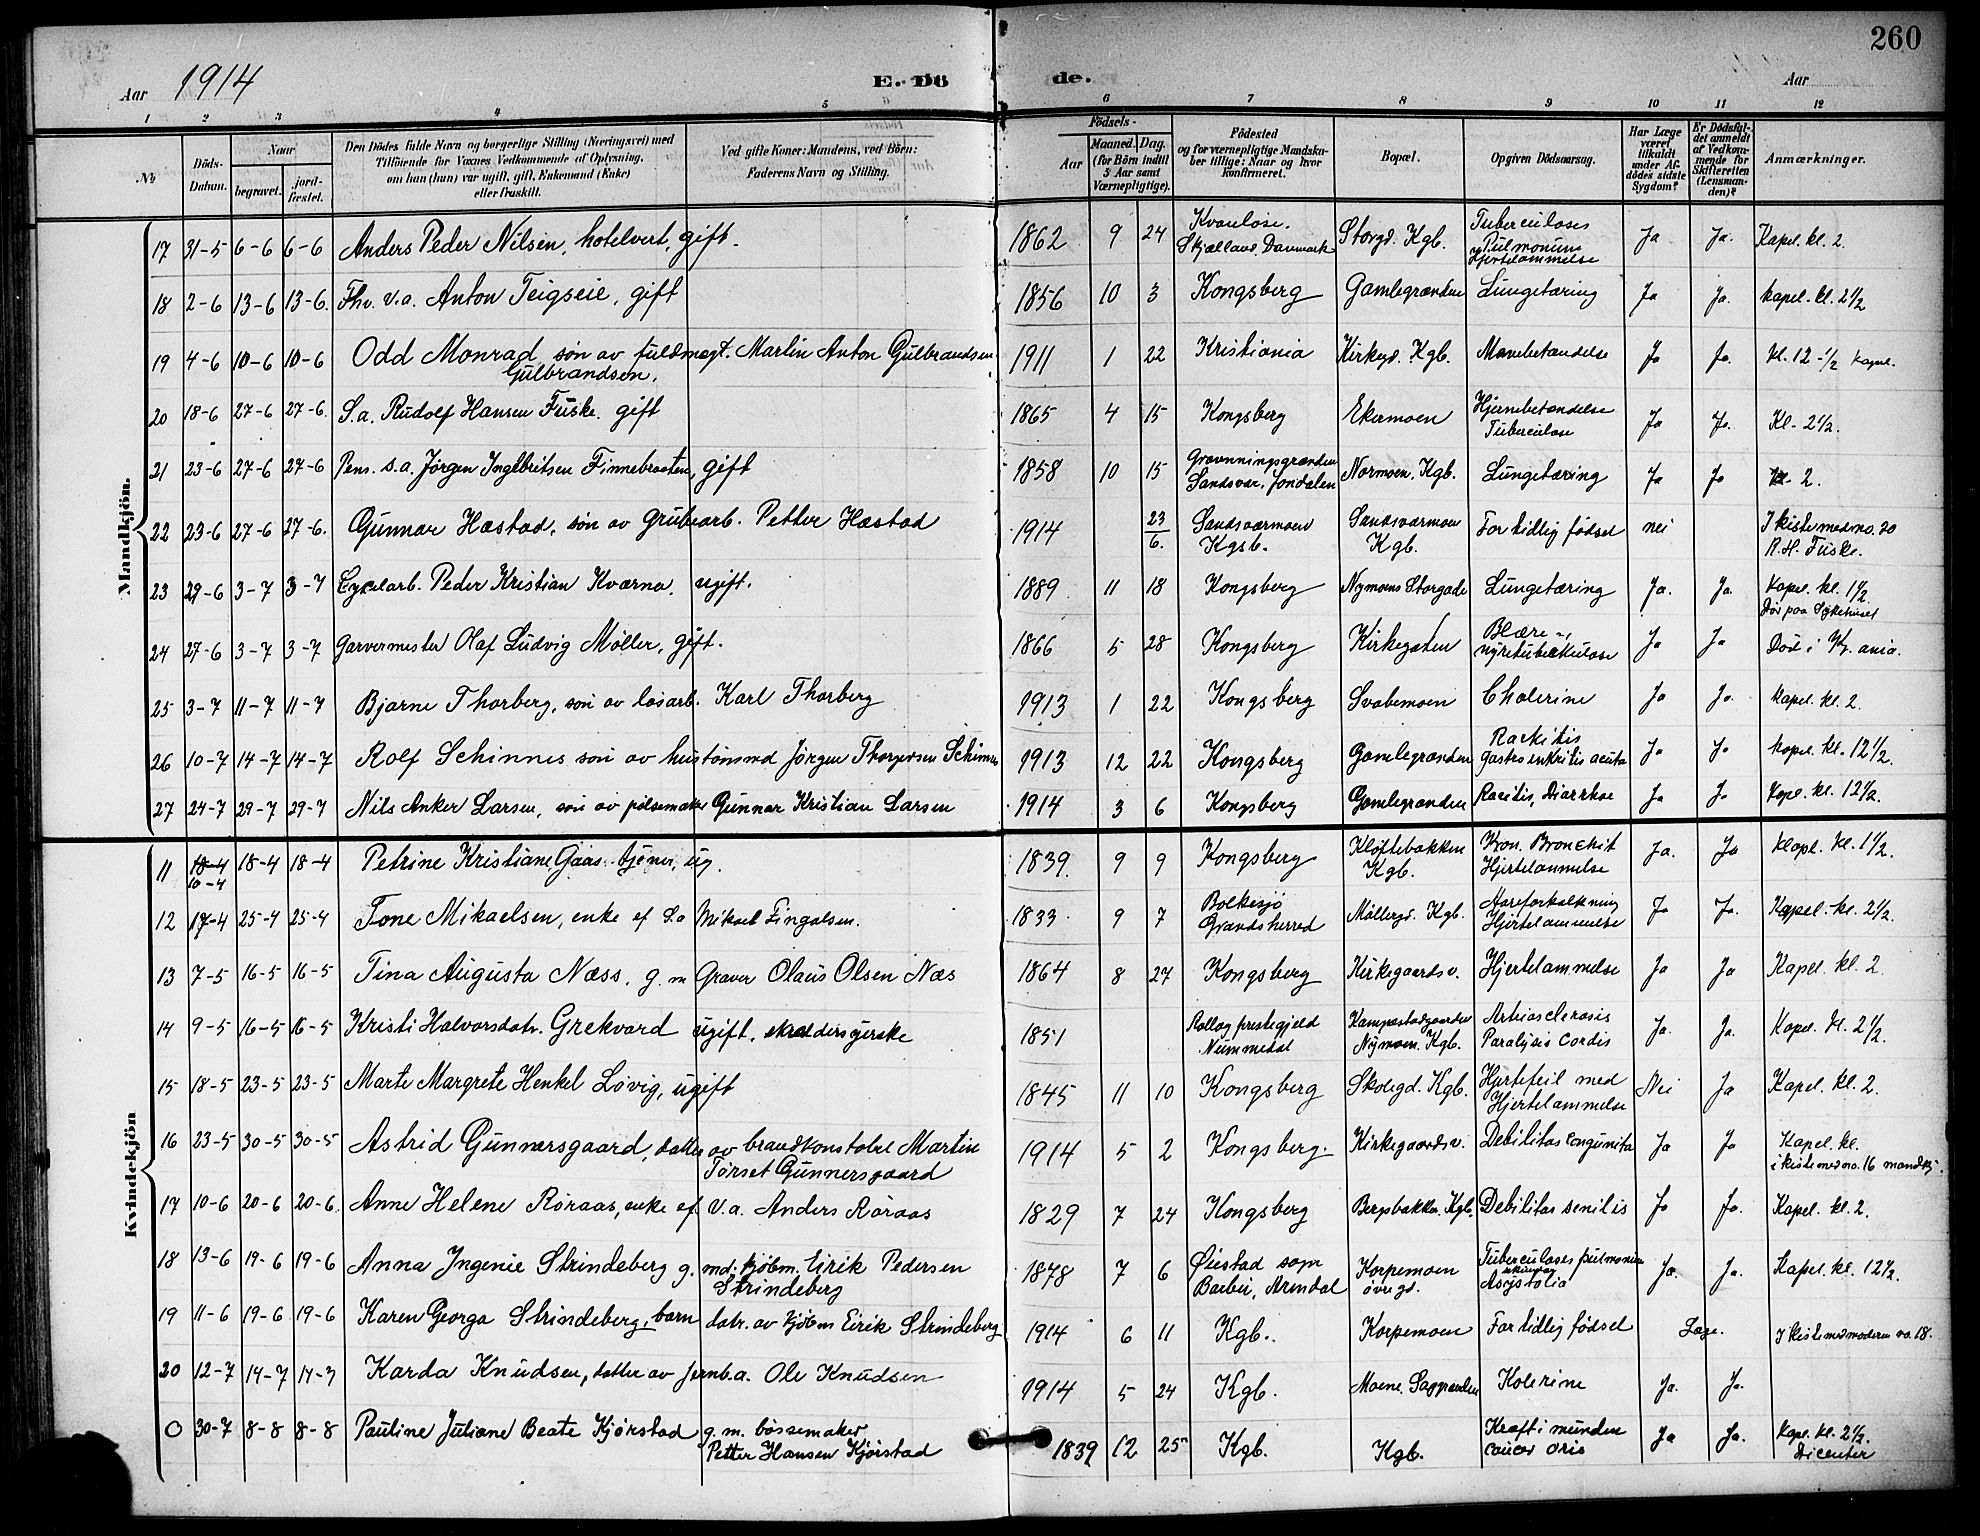 260
Aar 1914 E. Dö de. Aar
1 2 3 4 5 6 7 8 9 10 11 12
No
Döds-Datum.
Naar
begravet.
jord-fæstet.
Den Dödes fulde Navn og borgerlige Stilling (Næringsvei) med
Tilföiende for Voxnes Vedkommende af Oplysning,
om han (hun) var ugift, gift, Enkemand (Enke)
eller fraskilt.
Ved gifte Koner: Mandens, ved Börn:
Faderens Navn og Stilling.
Födsels-
Aar
Maaned. Dag.
(for Börn indtil
5 Aar samt
Værnepligtige).
Födested
og for værnepligtige Mandska-
ber tillige: Naar og hvor
konfirmeret.
Bopæl.
Opgiven Dödsaarsag.
Har Læge
været
tilkaldt
under Af-
dödes sidste
Sygdom?
Er Dödsfal-
det anmeldt
af Vedkom-
mende for
Skifteretten
(Lensman-
den)?
Anmærkninger.
Mandkjön.
17 31-5 6-6 6-6 Anders Peder Nilsen, hotelvert, gift. 1862 9 24 Kvanløse. Skjælland, Danmark Storgd. Kgb. Tuberculoses Pulmonum Hjertelammelse Ja Ja. Kapel. kl. 2.
18 2-6 13-6 13-6. Fhv. v.a. Anton Teigseie, gift 1856 10 3 Kongsberg Gamlegrænden Lungetæring Ja Ja. kapel. kl. 2 1/2
19 4-6 10-6 10-6 Odd Monrad Gulbrandsen, søn av fuldmægt. Martin Anton Gulbrandsen 1911 1 22 Kristiania Kirkegd. Kgb. Mavebetændelse Ja Ja. kl. 12-1/2 kapel.
20 18-6 27-6 27-6. S.a. Rudolf Hansen Fuske. gift 1865 4 15 Kongsberg Ekermoen Hjernebetændelse Tuberculose Ja Ja. Kl. 2 1/2.
21 23-6 27-6 27-6 Pens. s.a. Jørgen Ingebritsen Finnebraaten, gift 1858 10 15 Sandsvær, Jondalen Normoen. Kgb. Lungetæring Ja Ja 2.
22 23-6 27-6 27-6. Gunnar Hæstad, søn av grubearb. Petter Hæstad 1914 23/6. Sandsværmoen Kgsb. Sandsværmoen Kgb. For tidlig fødsel nei I kiste med no. 20 R.H. Fuske.
23 29-6 3-7 3-7 Cykelarb. Peder Kristian Kværna, ugift. 1889 11 18 Kongsberg Nymoens Storgade Lungetæring Ja. Ja. Kapel. kl. 1 1/2. Dør paa Sykehuset
24 27-6 3-7 3-7 Garvermester Olaf Ludvig Møller, gift. 1866 5 28 Kongsberg Kirkegaten Blære-, nyretuberkulose Ja Ja Død i Kr.ania.
25 3-7 11-7 11-7 Bjarne Thorberg, søn av løsarb. Karl Thorberg 1913 1 22 Kongsberg Svabemoen Cholerine Ja Ja. Kapel. kl. 2.
26 10-7 14-7 14-7 Rolf Schinnes søn av hustømmd Jørgen Thorgersen Schinnes 1913 12 22 Kongsberg Gamlegrænden Rackitis gastroenkritis acuta Ja Ja kapel. kl. 12 1/2.
27 24-7 29-7 29-7 Nils Anker Larsen, søn av pølsemaker Gunnar Kristian Larsen 1914 3 6 Kongsberg Gamlegrænden Racitis, Diarrhoe Ja Ja Kapel. kl. 12 1/2.
Kvindekjön
11 18-4 10-4 18-4 18-4 Petrine Kristiane Gaas. tjener, ug. 1839. 9 9 Kongsberg Kløftebakken Kgb. Kron. Bronchit Hjertelammelse Ja. Ja Kapel. kl. 1 1/2.
12 17-4 25-4 25-4 Tone Mikaelsen, enke ef s.a Mikael Fingalsen. 1833. 9 7 Bolkesjø Grandsherred Møllergd. Kgb. Aareforkalkning Hjertelammelse Ja Ja. Kapel.-kl. 2 1/2.
13 7-5 16-5 16-5 Tina Augusta Næss, g. m Graver Olaus Olsen Næs 1864 8 27 Kongsberg Kirkegaardsv. Hjertelammelse Ja Ja Kapel. kl. 2.
14 9-5 16-5 16-5 Kristi Halvorsdatr. Grekvard ugift. skræddersyerske 1851 Rollag prestegjeld Nummedal Nymoen. Kgb. Artriosclerosis Paralysis cordis Ja. Ja. Kapel. kl. 2 1/2.
15 18-5 23-5 23-5 Marte Margrete Henkel Løvig, ugift 1845 11 10 Kongsberg Skolegd. Kgb. Hjertefeil med Hjertelammelse Nei Ja Kapel. kl. 2.
16 23-5 30-5 30-5 Astrid Gunnersgaard, datter av brandkonstabel Martin Torset Gunnersgaard 1914 5 2 Kongsberg. Kirkegaardsv. Debilitas congunita Ja Ja Kapel. kl. i kiste med no. 16 mandkj.
17 10-6 20-6 20-6. Anne Helene Røraas, enke ef. v.a. Anders Røraas 1829 7 24 Kongsberg Bergsbakken. Kgb. Debilitas senilis Ja Ja. Kapel. kl. 2.
18 13-6 19-6 19-6 Anna Ingenie Strindeberg g. md. kjøbm. Eirik Pedersen Strindeberg 1878 7 6 Øiestad sogn Barbu, Arendal Korpemoen øvre gd. Tuberculoses pulmonum Asystolia Ja. Ja. Kapel. kl. 12 1/2.
19 11-6 19-6 19-6 Karen Georga Strindeberg, barn datr. av kjøbm Eirik Strindeberg 1914 6 11 Kgb.. Korpemoen For tidlig fødsel Læge. I kiste med moderen no. 18.
20 12-7 14-7 14-7 Karda Knudsen, datter av jernb.a. Ole Knudsen 1914 5 24 Kgb. Moene. Kolerine Ja. Ja.
0 30-7 8-8 8-8 Pauline Juliane Beate Kjørstad g. m. bøssemaker Petter Hansen Kjørstad 1839 12 25 Kgb. Kgb. Kræft i munden cancer oris Ja Ja. Kapel. kl. 2 1/2. Dicenter